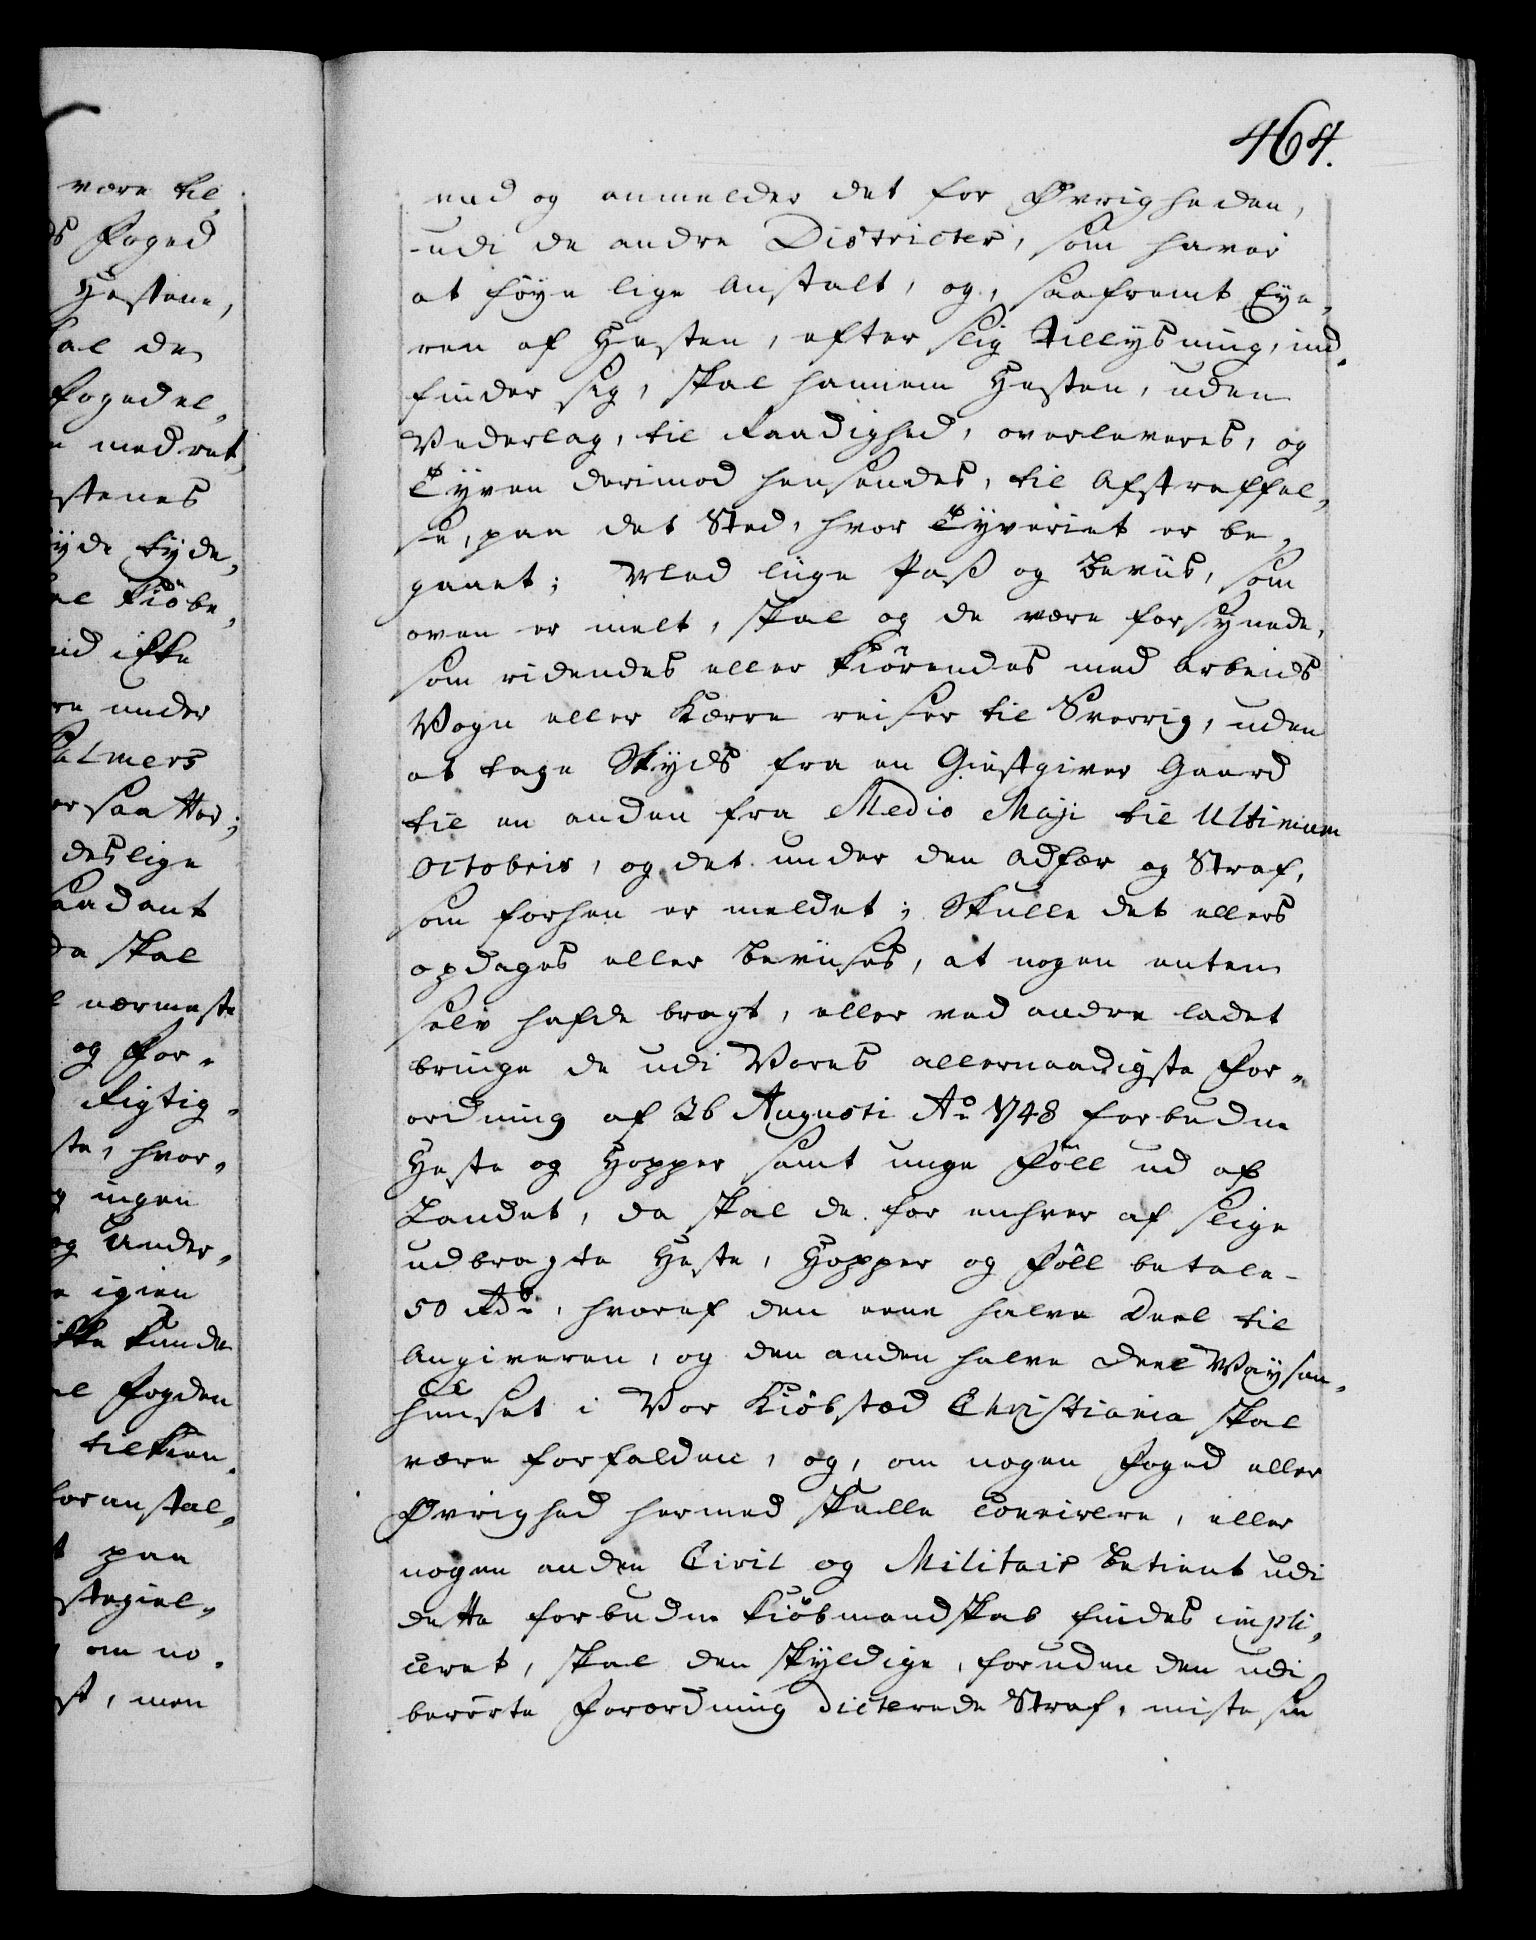 være til
ds Foged
Hestene,
al de
Fogedel,
e med ret,
stenes
yde tyde,
al Kiöbe,
nid ikke
re under
Palmers
er saa Hor,
deslige
aadant
da skal
l nærmeste
og For„
Rigtig„
ste, hvor„
g ingen
og Under„
e igien
ikke kunde
al Fogden
tilkien„
foranstal„
t paa
stegiel„
om no„
st, men
464.
end og anmelder det for Øvrigheden,
udi de andre Districter, som haver
at föye lige Anstalt, og, saafremt Eye„
ren af Hesten, efter slig Tillysning, ind„
finder sig, skal hannem Hesten, uden
Vederlag, til Raadighed, overleveres, og
Tyven derimod hensendes, til Afstraffel„
se, paa det Sted, hvor Tyveriet er be„
gaaet; Med liige Pass og Beviis, som
oven er melt, skal og de være forsynede,
som ridendes eller kiörendes med Arbeids
Vogn eller Kærre reiser til Sverrig, uden
at tage Skyds fra en Giestgiver Gaard
til en anden fra Medio Maji til Ultimum
Octobris, og det under den Adfær og Straf,
som forhen er meldet; Skulle det ellers
opdages eller beviises, at nogen enten
selv hafde bragt, eller ved andre ladet
bringe de udi Vores allernaadigste For„
ordning af 26 Augusti Aº 1748 forbudne
Heste og Hopper samt unge Föll ud af
Landet, da skal de for enhver af slige
udbragte Heste, Hopper og Föll betale
50 Rdr, hvoraf den eene halve Deel til
Angiveren, og den anden halve Deel Waysen„
huuset i Vor Kiöbstæd Christiania skal
være forfalden, og, om nogen Foged eller
Øvrighed hermed skulle connivere, eller
nogen anden Civil og Militair Betient udi
dette forbudne Kiöbmandskab findes impli„
ceret, skal den skyldige, foruden den udi
berörte Forordning dicterede Straf, miste sin